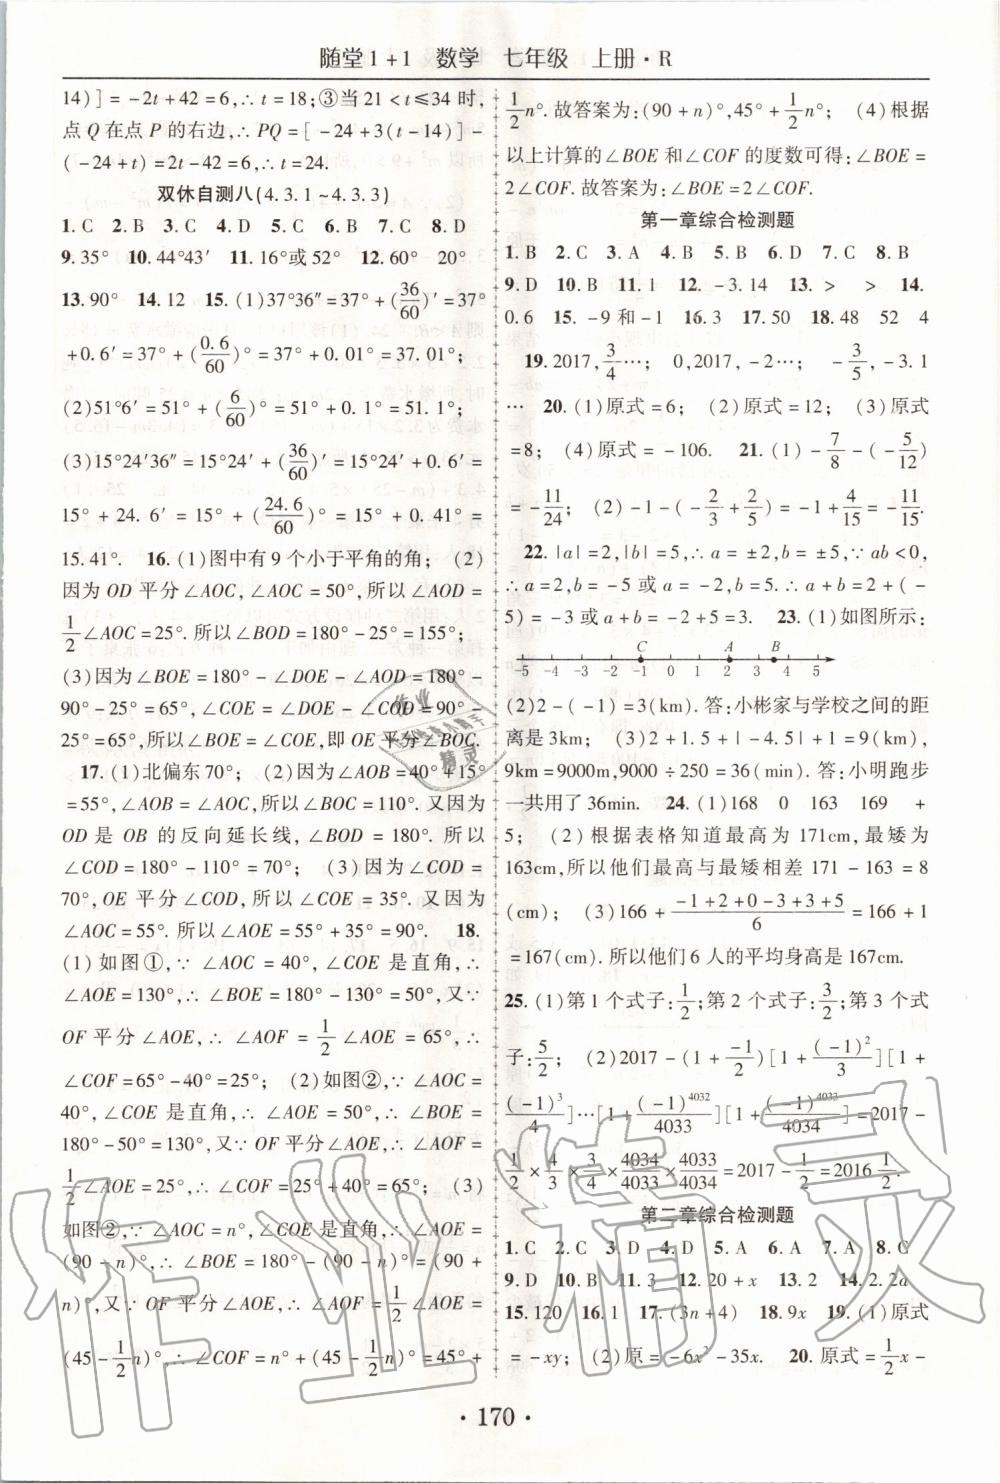 随堂1+1 数学 七年级 上册·R
14)]=-2t+42=6,∴t=18;③当21<t≤34时,
点Q在点P的右边,∴PQ=[-24+3(t-14)]-
(-24+t)=2t-42=6,∴t=24.
双休自测八(4.3.1~4.3.3)
1.C 2.B 3.C 4.D 5.C 6.B 7.C 8.D
9.35° 10.44°43′ 11.16°或52° 12.60° 20°
13.90° 14.12 15.(1)37°36″=37°+(36/60)′=37°
+0.6′=37°+(0.6/60)°=37°+0.01°=37.01°;
(2)51°6′=51°+(6/60)°=51°+0.1°=51.1°;
(3)15°24′36″=15°24′+(36/60)′=15°24′+0.6′=
15°+24.6′=15°+(24.6/60)°=15°+0.41°=
15.41°. 16.(1)图中有9个小于平角的角;(2)
因为OD平分∠AOC,∠AOC=50°,所以∠AOD=
1/2∠AOC=25°.所以∠BOD=180°-25°=155°;
(3)因为∠BOE=180°-∠DOE-∠AOD=180°-
90°-25°=65°,∠COE=∠DOE-∠COD=90°-
25°=65°,所以∠BOE=∠COE,即OE平分∠BOC.
17.(1)北偏东70°;(2)因为∠AOB=40°+15°
=55°,∠AOC=∠AOB,所以∠BOC=110°.又因为
OD是OB的反向延长线,∠BOD=180°.所以
∠COD=180°-110°=70°;(3)因为∠COD=
70°,OE平分∠COD,所以∠COE=35°.又因为
∠AOC=55°.所以∠AOE=55°+35°=90°. 18.
(1)如图①,∵∠AOC=40°,∠COE是直角,∴
∠AOE=130°,∴∠BOE=180°-130°=50°,又∵
OF平分∠AOE,∴∠AOF=1/2∠AOE=65°,∴
∠COF=65°-40°=25°;(2)如图②,∵∠AOC=
40°,∠COE是直角,∴∠AOE=50°,∴∠BOE=
180°-50°=130°,又∵OF平分∠AOE,∴∠AOF=
1/2∠AOE=25°,∴∠COF=25°+40°=65°;(3)
如图②,∵∠AOC=n°,∠COE是直角,∴∠AOE=
(90-n)°,∴∠BOE=180°-(90-n)°=(90+
n)°,又∵OF平分∠AOE,∴∠AOF=1/2∠AOE=
(45-1/2n)°∴∠COF=n°+(45-1/2n)°=45°+
1/2n°.故答案为:(90+n)°,45°+1/2n°;(4)根据
以上计算的∠BOE和∠COF的度数可得:∠BOE=
2∠COF.故答案为:∠BOE=2∠COF.
第一章综合检测题
1.B 2.C 3.A 4.B 5.B 6.B 7.C 8.B
9.D 10.B 11.1 12.-3.14 13.> > 14.
0.6 15.-9和-1 16.3 17.50 18.48 52 4
19.2017,3/4…; 0,2017,-2…; -3/5,-3.1
… 20.(1)原式=6;(2)原式=12;(3)原式
=8;(4)原式=-106. 21.(1)-7/8-(-5/12)
=-11/24;(2)-1-(-2/3+2/5)=-1+4/15=-11/15.
22.|a|=2,|b|=5,∴a=±2,b=±5,∵ab<0,
∴a=2,b=-5或a=-2,b=5.∴a+b=2+(-
5)=-3或a+b=-2+5=3. 23.(1)如图所示:
C A B
-5 -4 -3 -2 -1 0 1 2 3 4 5
(2)2-(-1)=3(km).答:小彬家与学校之间的距
离是3km;(3)2+1.5+|-4.5|+1=9(km),
9km=9000m,9000÷250=36(min).答:小明跑步
一共用了36min. 24.(1)168 0 163 169 +
5;(2)根据表格知道最高为171cm,最矮为
163cm,所以他们最高与最矮相差171-163=8
(cm);(3)166+(-1+2+0-3+3+5)/6=166+1
=167(cm).所以他们6人的平均身高是167cm.
25.(1)第1个式子:1/2;第2个式子:3/2;第3个式
子:5/2;(2)2017-(1+-1/2)[1+(-1)²/3][1+
(-1)³/4]…[1+(-1)⁴⁰³²/4033][1+(-1)⁴⁰³³/4034]=2017-
1/2×4/3×3/4×4034/4033×4033/4034=2017-1/2=2016 1/2.
第二章综合检测题
1.C 2.C 3.D 4.D 5.A 6.A 7.A 8.C
9.D 10.B 11.3 12.20+x 13.2 14.2.2a
15.120 16.1 17.(3n+4) 18.9x 19.(1)原式
=-xy;(2)原=-6x²-35x. 20.原式=1/2x-
·170·
作业精灵